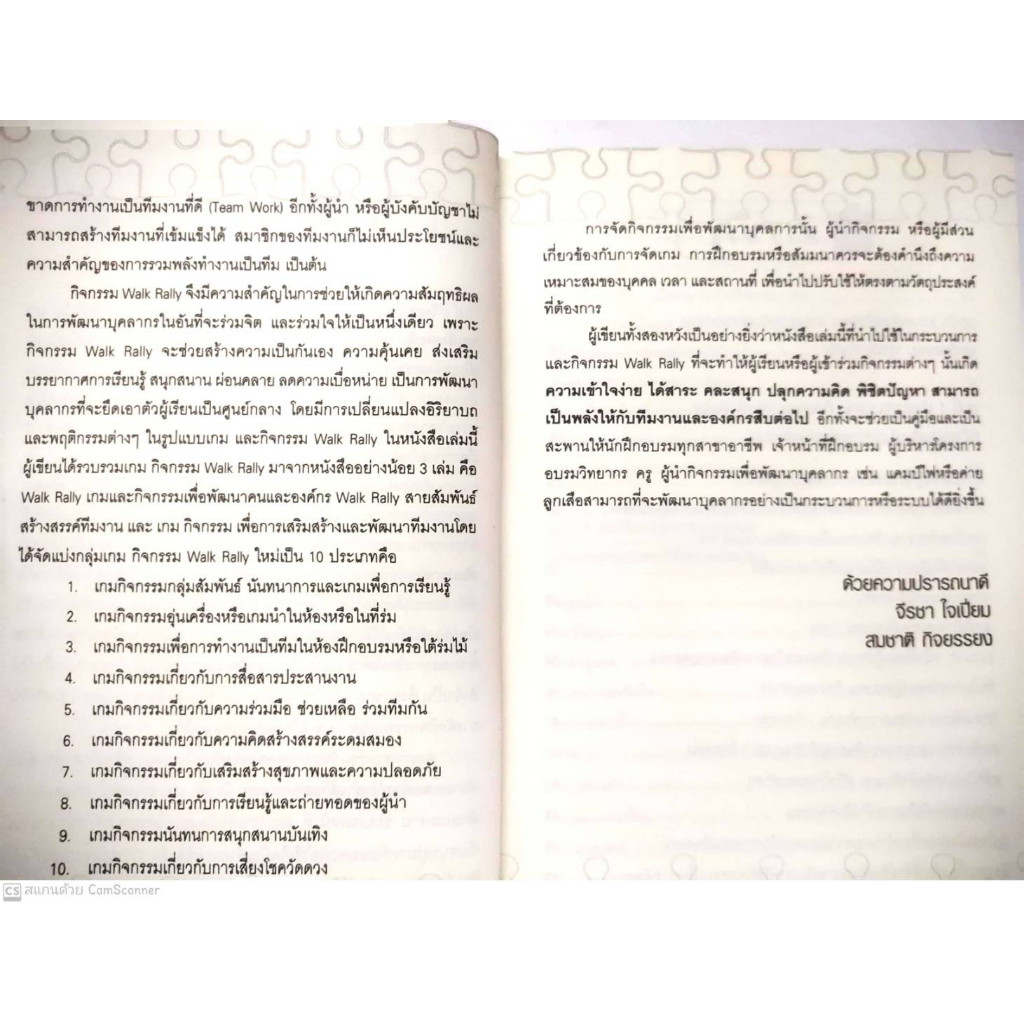 ขาดการทำงานเป็นทีมงานที่ดี (Team Work) อีกทั้งผู้นำ หรือผู้บังคับบัญชาไม่
สามารถสร้างทีมงานที่เข้มแข็งได้ สมาชิกของทีมงานก็ไม่เห็นประโยชน์และ
ความสำคัญของการรวมพลังทำงานเป็นทีม เป็นต้น
กิจกรรม Walk Rally จึงมีความสำคัญในการช่วยให้เกิดความสัมฤทธิผล
ในการพัฒนาบุคลากรในอันที่จะร่วมจิต และร่วมใจให้เป็นหนึ่งเดียว เพราะ
กิจกรรม Walk Rally จะช่วยสร้างความเป็นกันเอง ความคุ้นเคย ส่งเสริม
บรรยากาศการเรียนรู้ สนุกสนาน ผ่อนคลาย ลดความเบื่อหน่าย เป็นการพัฒนา
บุคลากรที่จะยึดเอาตัวผู้เรียนเป็นศูนย์กลาง โดยมีการเปลี่ยนแปลงอิริยาบถ
และพฤติกรรมต่างๆ ในรูปแบบเกม และกิจกรรม Walk Rally ในหนังสือเล่มนี้
ผู้เขียนได้รวบรวมเกม กิจกรรม Walk Rally มาจากหนังสืออย่างน้อย 3 เล่ม คือ
Walk Rally เกมและกิจกรรมเพื่อพัฒนาคนและองค์กร Walk Rally สายสัมพันธ์
สร้างสรรค์ทีมงาน และ เกม กิจกรรม เพื่อการเสริมสร้างและพัฒนาทีมงานโดย
ได้จัดแบ่งกลุ่มเกม กิจกรรม Walk Rally ใหม่เป็น 10 ประเภทคือ
1. เกมกิจกรรมกลุ่มสัมพันธ์ นันทนาการและเกมเพื่อการเรียนรู้
2. เกมกิจกรรมอุ่นเครื่องหรือเกมนำในห้องหรือในที่ร่ม
3. เกมกิจกรรมเพื่อการทำงานเป็นทีมในห้องฝึกอบรมหรือใต้ร่มไม้
4. เกมกิจกรรมเกี่ยวกับการสื่อสารประสานงาน
5. เกมกิจกรรมเกี่ยวกับความร่วมมือ ช่วยเหลือ ร่วมทีมกัน
6. เกมกิจกรรมเกี่ยวกับความคิดสร้างสรรค์ระดมสมอง
7. เกมกิจกรรมเกี่ยวกับเสริมสร้างสุขภาพและความปลอดภัย
8. เกมกิจกรรมเกี่ยวกับการเรียนรู้และถ่ายทอดของผู้นำ
9. เกมกิจกรรมนันทนการสนุกสนานบันเทิง
10. เกมกิจกรรมเกี่ยวกับการเสี่ยงโชควัดดวง
CS สแกนด้วย CamScanner
การจัดกิจกรรมเพื่อพัฒนาบุคลการนั้น ผู้นำกิจกรรม หรือผู้มีส่วน
เกี่ยวข้องกับการจัดเกม การฝึกอบรมหรือสัมมนาควรจะต้องคำนึงถึงความ
เหมาะสมของบุคคล เวลา และสถานที่ เพื่อนำไปปรับใช้ให้ตรงตามวัตถุประสงค์
ที่ต้องการ
ผู้เขียนทั้งสองหวังเป็นอย่างยิ่งว่าหนังสือเล่มนี้ที่นำไปใช้ในกระบวนการ
และกิจกรรม Walk Rally ที่จะทำให้ผู้เรียนหรือผู้เข้าร่วมกิจกรรมต่างๆ นั้นเกิด
ความเข้าใจง่าย ได้สาระ คละสนุก ปลุกความคิด พิชิตปัญหา สามารถ
เป็นพลังให้กับทีมงานและองค์กรสืบต่อไป อีกทั้งจะช่วยเป็นคู่มือและเป็น
สะพานให้นักฝึกอบรมทุกสาขาอาชีพ เจ้าหน้าที่ฝึกอบรม ผู้บริหารโครงการ
อบรมวิทยากร ครู ผู้นำกิจกรรมเพื่อพัฒนาบุคลากร เช่น แคมป์ไฟหรือค่าย
ลูกเสือสามารถที่จะพัฒนาบุคลากรอย่างเป็นกระบวนการหรือระบบได้ดียิ่งขึ้น
ด้วยความปรารถนาดี
จีรชา ใจเปี่ยม
สมชาติ กิจยรรยง